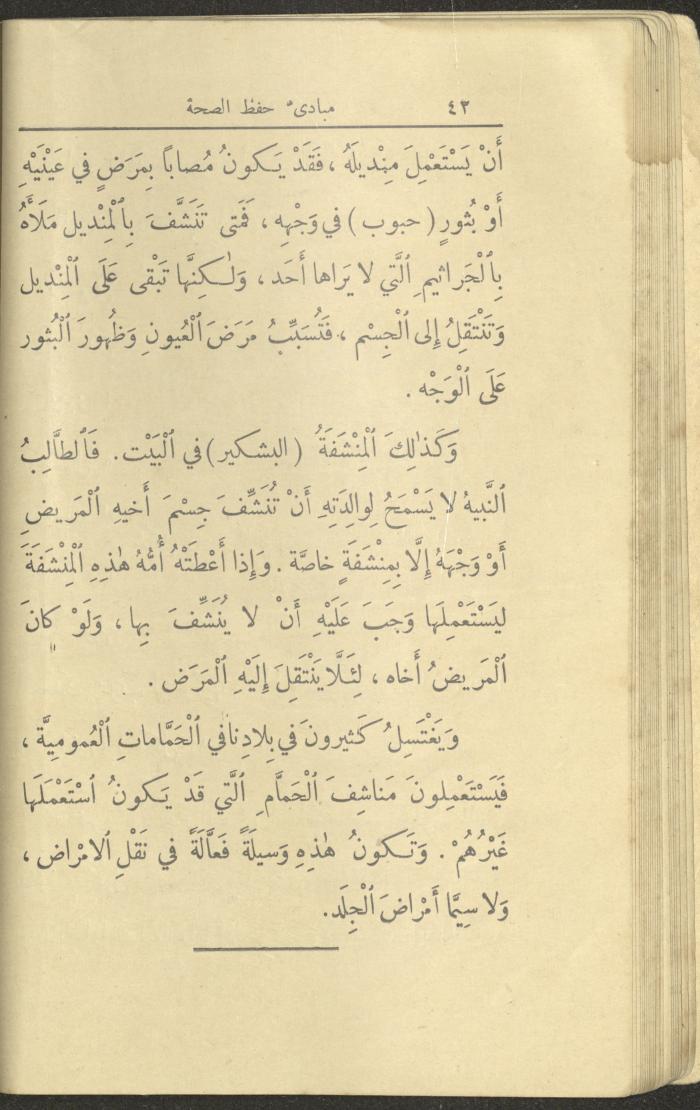 ٤٣ مبادىء حفظ الصحة
أَنْ يَسْتَعْمِلَ مِنْديلَهُ ، فَقَدْ يَكونُ مُصاباً بِمَرَضٍ في عَيْنَيْهِ
أَوْ بُثورٍ ( حبوب ) في وَجْهِهِ ، فَمَتى تَنَشَّفَ بِٱلْمِنْديل مَلَأَهُ
بِٱلْجَراثيمِ ٱلَّتي لا يَراها أَحَد ، وَلٰكِنَّها تَبْقى عَلَى ٱلْمِنْديل
وَتَنْتَقِلُ إِلى ٱلْجِسْم ، فَتُسَبِّبُ مَرَضَ ٱلْعُيونِ وَظُهورَ ٱلْبُثور
عَلَى ٱلْوَجْه .
وَكَذٰلِكَ ٱلْمِنْشَفَةُ ( البشكير ) في ٱلْبَيْت . فَٱلطَّالِبُ
ٱلنَّبيهُ لا يَسْمَحُ لِوالِدَتِهِ أَنْ تُنَشِّفَ جِسْمَ أَخيهِ ٱلْمَريضِ
أَوْ وَجْهَهُ إِلَّا بِمِنْشَفَةٍ خاصَّة . وَإِذا أَعْطَتْهُ أُمُّهُ هٰذِهِ ٱلْمِنْشَفَةَ
لِيَسْتَعْمِلَها وَجَبَ عَلَيْهِ أَنْ لا يُنَشِّفَ بِها ، وَلَوْ كانَ
ٱلْمَريضُ أَخاه ، لِئَلَّا يَنْتَقِلَ إِلَيْهِ ٱلْمَرَض .
وَيَغْتَسِلُ كَثيرونَ في بِلادِنا في ٱلْحَمَّاماتِ ٱلْعُمومِيَّة ،
فَيَسْتَعْمِلونَ مَناشِفَ ٱلْحَمَّامِ ٱلَّتي قَدْ يَكونُ ٱسْتَعْمَلَها
غَيْرُهُمْ . وَتَكونُ هٰذِهِ وَسيلَةً فَعَّالَةً في نَقْلِ ٱلامْراض ،
وَلا سِيَّما أَمْراضَ ٱلْجِلَد .